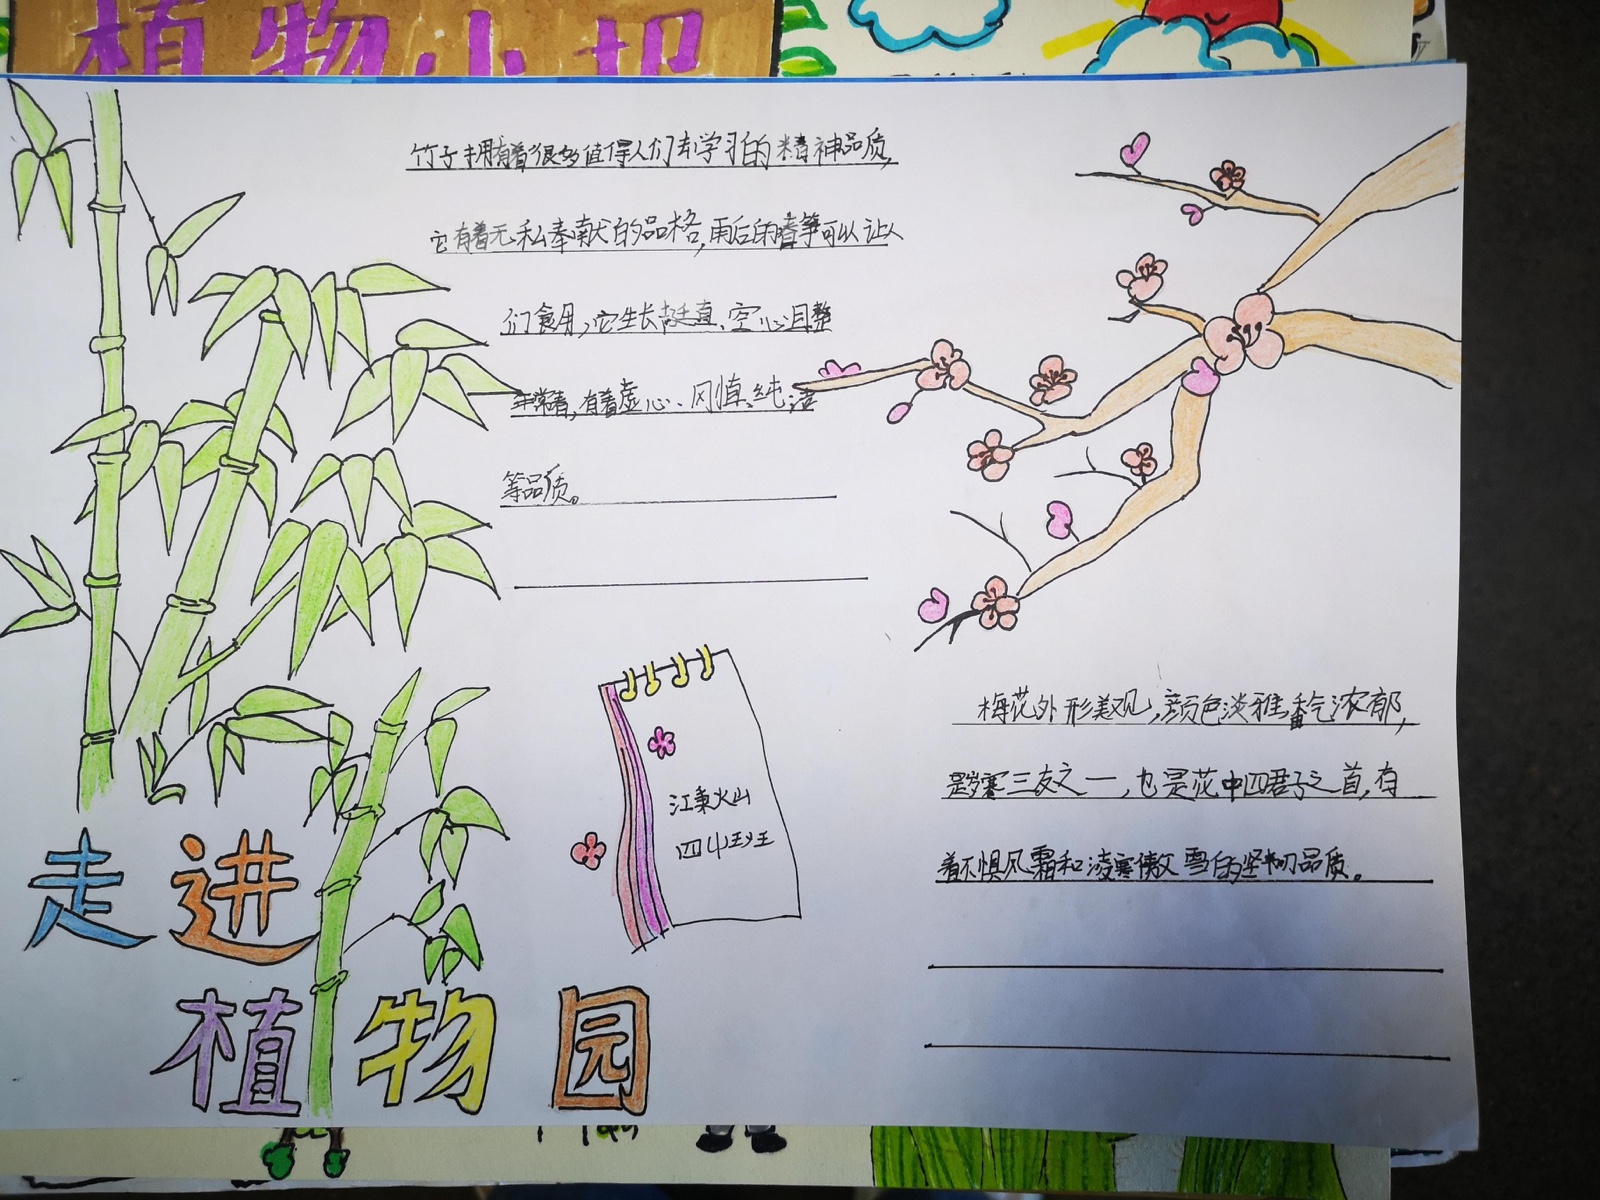 植物小报
竹子拥有着很多值得人们去学习的精神品质,
它有着无私奉献的品格,雨后的春笋可以让人
们食用,它生长挺直、空心且整
年常青,有着虚心、冈慎、纯洁
等品质。
梅花外形美观,颜色淡雅,香气浓郁,
是岁寒三友之一,也是花中四君子之首,有
着不惧风霜和凌寒傲雪的坚韧品质。
江秉火山
走进
植物园